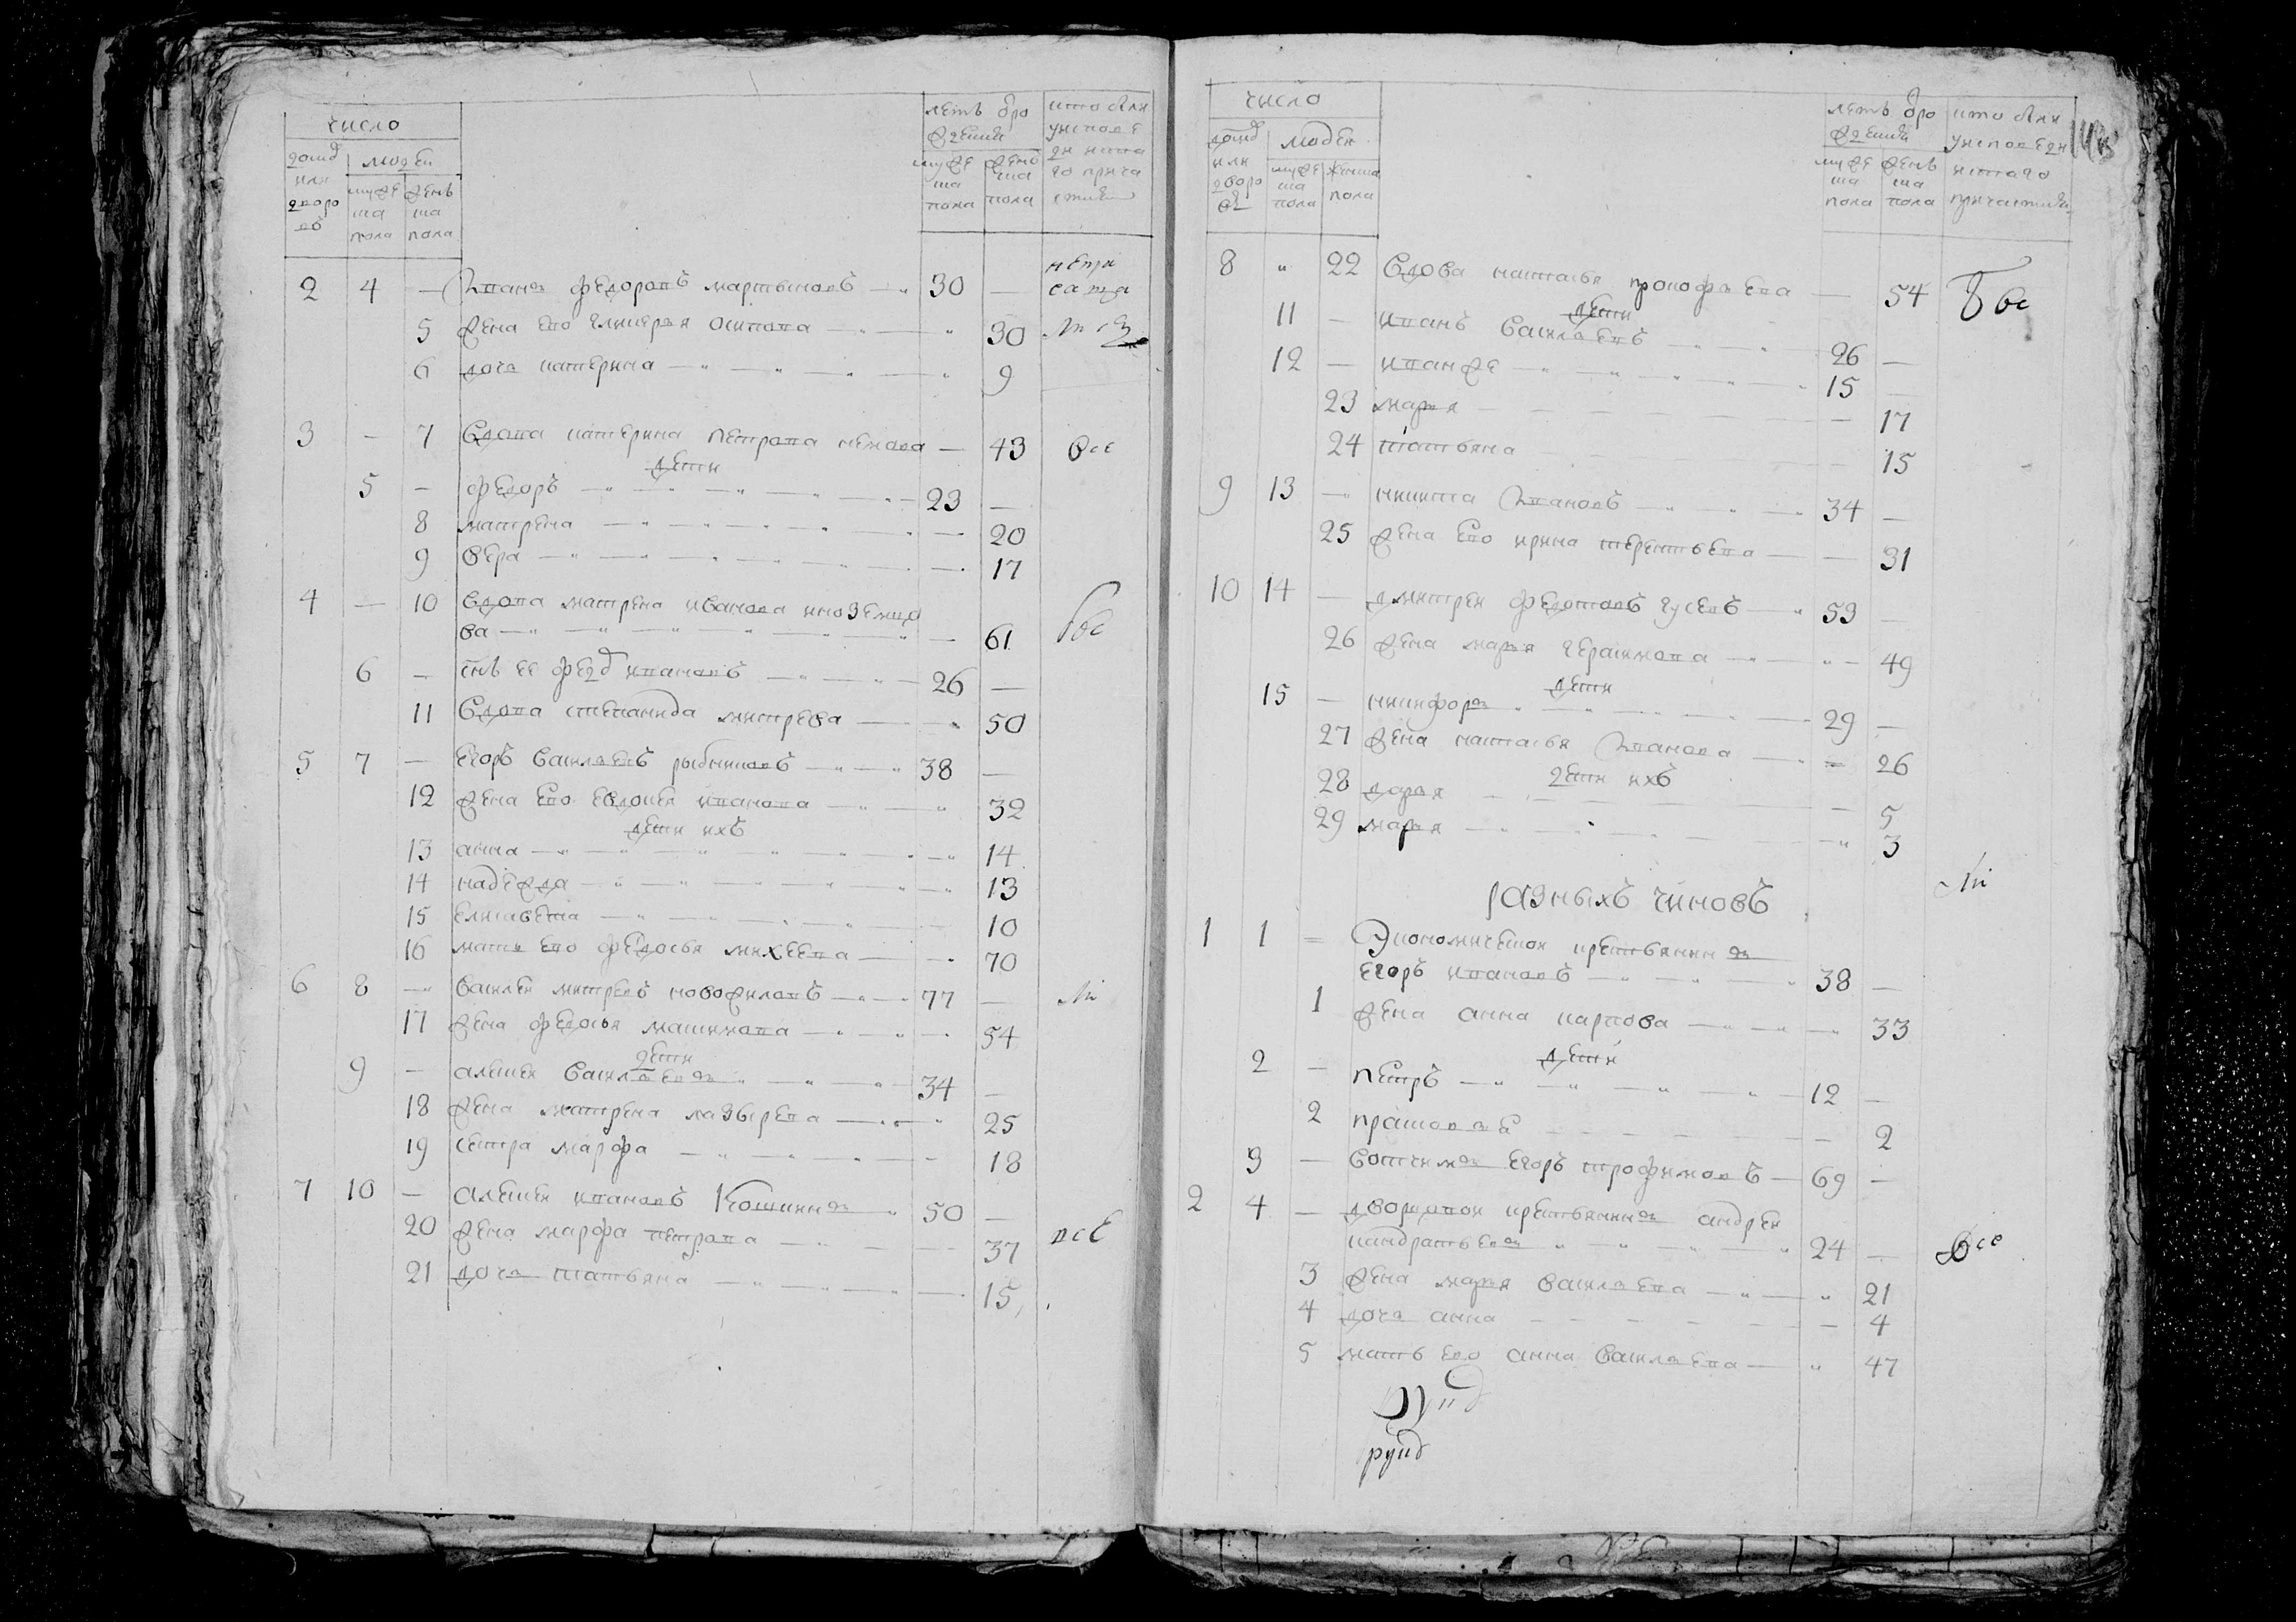 число
домъ или дворовъ
людеи
мужеска пола
женска пола
летъ от рождения
мужеска пола
женска пола
кто были у исповеди и свята го причастия
2 4 — Иванъ федоровъ мартыновъ — 30 —
5 жена его гликерья осипова — 30
6 дочь катерина — 9
3 — 7 Вдова катерина петрова — 43 все
дети
5 — федоръ — 23 —
8 матрена — 20
9 вера — 17
4 — 10 Вдова матрена иванова иноземцо
ва — 61 все
6 — снъ ее федо ивановъ — 26 —
11 Вдова степанида митрева — 50
5 7 — Егоръ Василевъ рыбниковъ — 38 —
12 жена Его Евдокея иванова — 32
дети ихъ
13 анна — 14
14 надежда — 13
15 елисавета — 10
16 мать его федосья михеева — 70
6 8 — Василеи митревъ новожиловъ — 77 —
17 жена федосья максимова — 54
дети
9 — алексеи Василевъ — 34 —
18 жена матрена лазырева — 25
19 сестра марфа — 18
7 10 — алексеи ивановъ Кошкинъ 50 —
20 жена марфа петрова — 37 все
21 дочь татьяна — 15
число
домъ или дворовъ
людеи
мужеска пола
женска пола
летъ от рождения
мужеска пола
женска пола
кто были у исповеди и святаго причастия
8 „ 22 Вдова наталья прокофьева — 54 все
дети
11 — иванъ Василевъ — 26 —
12 — иван же — 15 —
23 марья — 17
24 татьяна — 15
9 13 — никита Ивановъ — 34 —
25 жена Его ирина терентьева — 31
10 14 — дмитреи федотовъ гусевъ — 53 —
26 жена марья герасимова — 49
дети
15 — никифоръ — 29 —
27 жена наталья Иванова — 26
дети ихъ
28 дарья — 5
29 марья — 3
разныхъ чиновъ
1 1 = Экономическои крестьянинъ
Егоръ ивановъ — 38 —
1 жена анна карпова — 33
дети
2 — петръ — 12 —
2 прасковья — 2
3 — Вотчимъ Егоръ трофимовъ — 69 —
2 4 — дворцовои крестьянинъ андреи
кандратьевъ — 24 — Все
3 жена марья Василева — 21
4 дочь анна — 4
5 мать его анна Василева — 47